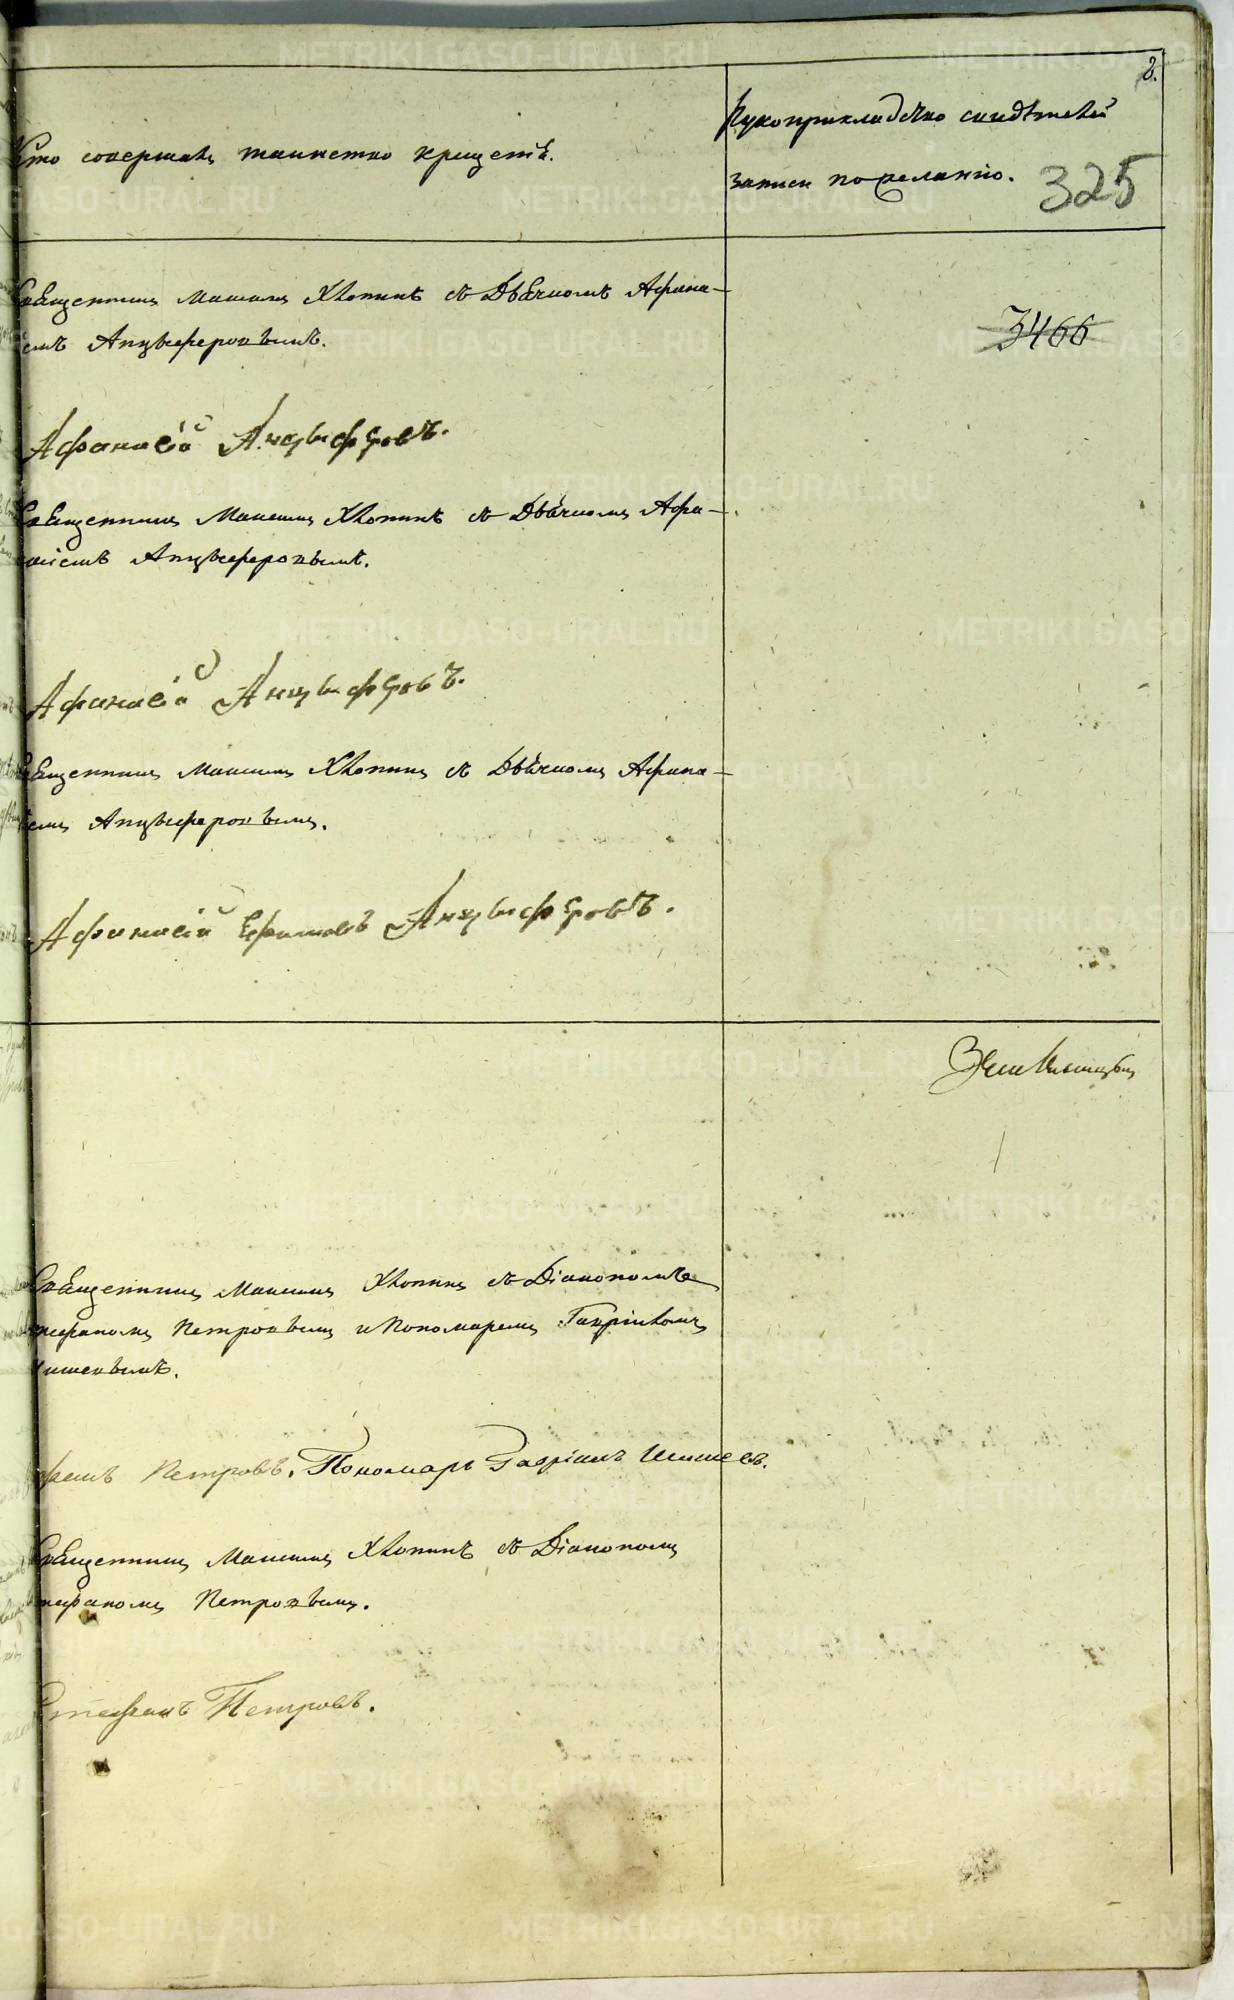 8.
Кто совершалъ таинство крещенія.
Рукоприкладство свидѣтелей
записи по желанію.
325
Священникъ Максимъ Хлопинъ съ Дьячкомъ Афана-
емъ Анцыферовымъ.
3466
Афанасій Анцыферовъ.
Священникъ Максимъ Хлопинъ съ Дьячкомъ Афа-
насіемъ Анцыферовымъ.
Афанасій Анцыферовъ.
Священникъ Максимъ Хлопинъ съ Дьячкомъ Афана-
емъ Анцыферовымъ.
Афанасій Ефимовъ Анцыферовъ.
Священникъ Максимъ Хлопинъ съ Діакономъ
тефаномъ Петровымъ и Пономаремъ Гавріиломъ
ишевымъ.
фанъ Петровъ. Пономарь Гавріилъ
Священникъ Максимъ Хлопинъ съ Діакономъ
тефаномъ Петровымъ.
Стефанъ Петровъ.
METRIKI.GASO-URAL.RU